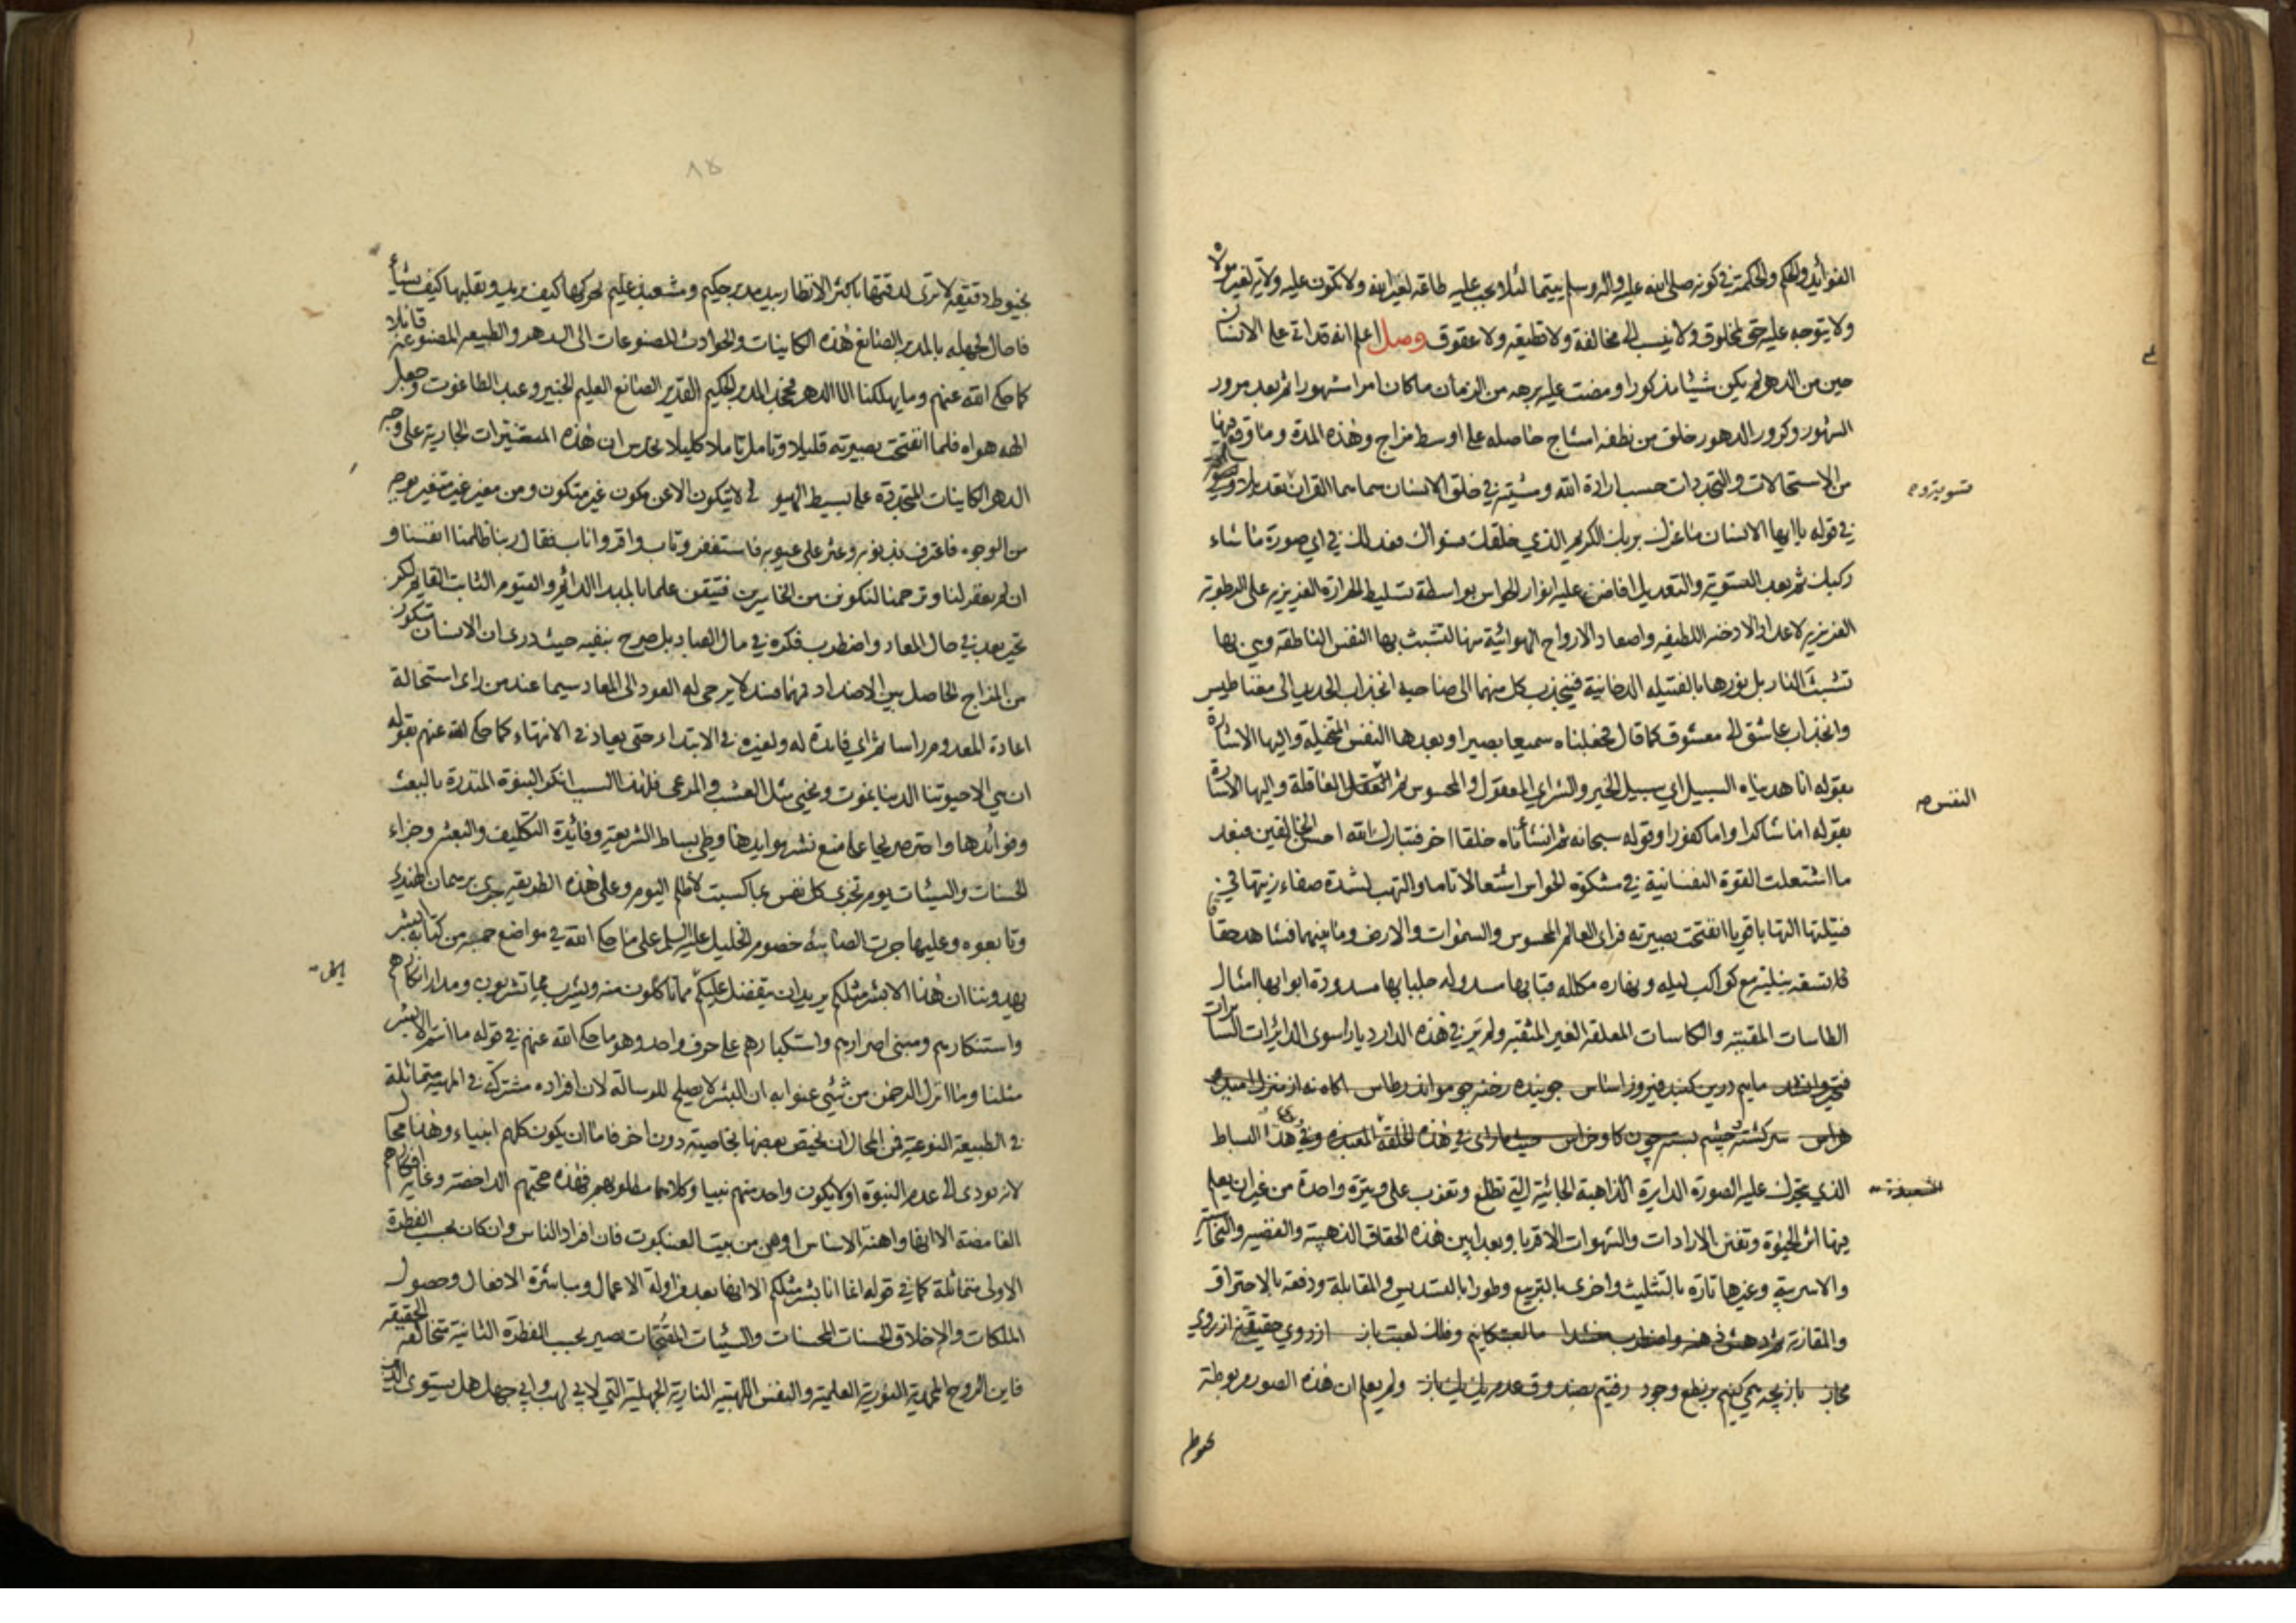 الفوائد والحكم والحكمة في كونه صلى الله عليه واله وسلم يتيما لئلا يجب عليه طاعة لغير الله ولا تكون عليه ولاية لغير مولاه
ولا يتوجه عليه حق لمخلوق ولا ينسب الى مخالفة ولا قطيعه ولا عقوق وصل اعلم انه قد اتى على الانسان
حين من الدهر لم يكن شيئا مذكورا ومضت عليه برهه من الزمان ما كان امرا مشهورا ثم بعد مرور
الشهور وكرور الدهور خلق من نطفه امشاج حاصله على اوسط مزاج وهذه المدة وما وقع فيها
من الاستحالات والتجددات حسب ارادة الله ومشيته في خلق الانسان سماها القران
تسوية
في قوله يا ايها الانسان ما غرك بربك الكريم الذي خلقك فسواك فعدلك في اي صورة ما شاء
ركبك ثم بعد التسوية والتعديل افاض عليه انوار الحواس بواسطة تسليط الحرارة الغريزيه على الرطوبة
الغريزيه لاعداد الادخنه اللطيفه واصعاد الارواح الهوائية منها لتشبث بها النفس الناطقه
تشبث النار بل نورها بالفتيله الدخانية فينجذب كل منهما الى صاحبه انجذاب الحديد الى مغناطيس
وانجذاب عاشق الى معشوق كما قال فجعلناه سميعا بصيرا وبعدها النفس المتخيله واليها الاشارة
بقوله انا هديناه السبيل اي سبيل الخير والشر اي المعقول والمحسوس ثم العاقلة واليها الاشارة
النفس
بقوله اما شاكرا واما كفورا وقوله سبحانه ثم انشأناه خلقا اخر فتبارك الله احسن الخالقين فبعد
ما اشتعلت القوة النفسانية في مشكوة الحواس اشتعالا تاما والتهب لشدة صفاء زيتها في
فتيلتها التهابا قويا انفتحت بصيرته فراى العالم المحسوس والسموات والارض وما بينهما فشاهد سقفا
مع كواكب ليله ونهاره مكلله قبابها مسدوله جلبابها مسدودة ابوابها امثال
الطاسات المقببه والكاسات المعلقه الغير المثقبه ولم ير في هذه الدار ديارا سوى الدائرات السائرات
مايم درين كنبد فيروز اساس جوينده رخنه چو مور اندر طاس اكاه نه از منزل اميد
هراس سركشته وچشم بسته چون كاو خراس في هذه الحلقة وفي هذا البساط
الذي يتحرك عليه الصورة الدايرة الذاهبة الجائية التي تطلع وتغرب على وتيرة واحدة من غير ان يعلم
فيها اثر الحيوة وتفنن الارادات والشهوات الا قربا وبعدا بين هذه الحقاق الذهبيه والفضيه والنحاسية
والاسربيه وغيرها تارة بالتثليث واخرى بالتربيع وطورا بالتسديس والمقابلة ودفعة بالاحتراق
والمقارنة ما لعبتكانيم وفلك لعبت باز از روي حقيقتي نه از روي
مجاز بازيچه همي كنيم بر نطع وجود رفتيم بصندوق عدم يك يك باز ولم يعلم ان هذه الصور مربوطة
بخيوط
٨٥
بخيوط دقيقه لا ترى لدقتها باكثر الانظار بيد مدبر حكيم ومشعبد عليم يحركها كيف يريد ويقلبها كيف يشاء
فاحال لجهله بالمدبر الصانع هذه الكاينات والحوادث المصنوعات الى الدهر والطبيعه المصنوعة قائلا
كما حكى الله عنهم وما يهلكنا الا الدهر فجحد المدبر الحكيم القدير الصانع العليم الخبير وعبد الطاغوت وجعل
الهه هواه فلما انفتحت بصيرته قليلا وتامل تاملا كليلا تحدس ان هذه المتغيرات الجارية على وجه
الدهر والكاينات المتجددة على بسيط الهيولى لا يتكون الا عن مكون غير متكون ومن مغير غير متغير بوجه
من الوجوه فاعترف بذنوبه وعثر على عيوبه فاستغفر وتاب واقر واناب فقال ربنا ظلمنا انفسنا و
ان لم تغفر لنا وترحمنا لنكونن من الخاسرين فتيقن علما بالمبدا الدائم والقيوم الثابت القايم لكن
تحير بعد في حال المعاد واضطرب فكره في مال العباد بل صرح بنفيه حيث درى ان الانسان متكون
من المزاج الحاصل بين الاضداد فمهما فسد لا يرجى له العود الى المعاد سيما عند من راى استحالة
اعادة المعدوم راسا ثم اي فايدة له ولغيره في الابتداء حتى يعاد في الانتهاء كما حكى الله عنهم بقوله
ان هي الا حيوتنا الدنيا نموت ونحيى مثل العشب والمرعى فلهذا السبب انكر النبوة المنذرة بالبعث
وفوائدها واعترض يحيا على منع نشر موايدها وطي بساط الشريعة وفائدة التكليف والبعث وجزاء
الحسنات والسيئات يوم تجزى كل نفس بما كسبت لا ظلم اليوم وعلى هذه الطريقه جرى برهمان الهندي
وتابعوه وعليها جرت الصابئه خصوم الخليل عليه السلام على ما حكى الله في مواضع جمه من كتابه ابشر
يهدوننا ان هذا الا بشر مثلكم يريد ان يتفضل عليكم مما تاكلون منه ويشرب مما تشربون ومدار انكارهم
ياكل
واستنكارهم ومبنى اصرارهم واستكبارهم على حرف واحد وهو ما حكى الله عنهم في قوله ما انتم الا بشر
مثلنا وما انزل الرحمن من شئي عنوا به ان البشر لا يصلح للرسالة لان افراده مشتركة في المهية متماثلة
في الطبيعة النوعية فمن المحال ان يختص بعضها بخاصية دون اخر فاما ان يكون كلهم انبياء وهذا محال
لانه يودى الى عدم النبوة او لا يكون واحد منهم نبيا وكلاهما مطلوبهم فهذه حجتهم الداحضة وغاية افكارهم
الغامضة الا انها واهنة الاساس اوهن من بيت العنكبوت فان افراد الناس وان كان بحسب الفطرة
الاولى متماثلة كما في قوله انما انا بشر مثلكم الا انها بعد مزاولة الاعمال ومباشرة الافعال وحصول
الملكات والاخلاق الحسنات المحسنات والسيئات المقبحات تصير بحسب الفطرة الثانية متخالفة الحقيقة
فاين الروح المحمدية النورية العلمية والنفس اللهبية النارية الجهلية التي لابي لهب وابي جهل هل يستوى الذين